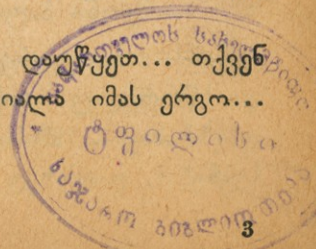 დაუწყეთ... თქვენ
იალმა იმას ერგო...
ტფილისი
საჯარო ბიბლიოთეკა
3